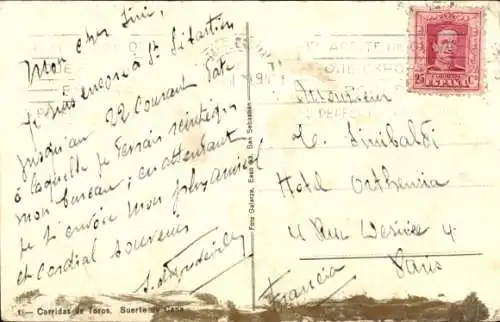 Mon cher Simi,
Je suis encore à St Sébastien
jusqu'au 22 courant date
à laquelle je devrais réintégrer
mon bureau; en attendant
je t'envoie mon plus amical
et cordial souvenir
Foto Galarza, Easo San Sebastián
25 Cs
ESPAÑA
Monsieur
H. Sinibaldi
Hotel Orthensia
4 Rue 4
Paris
Francia
1 — Corridas de Toros. Suerte de Capa